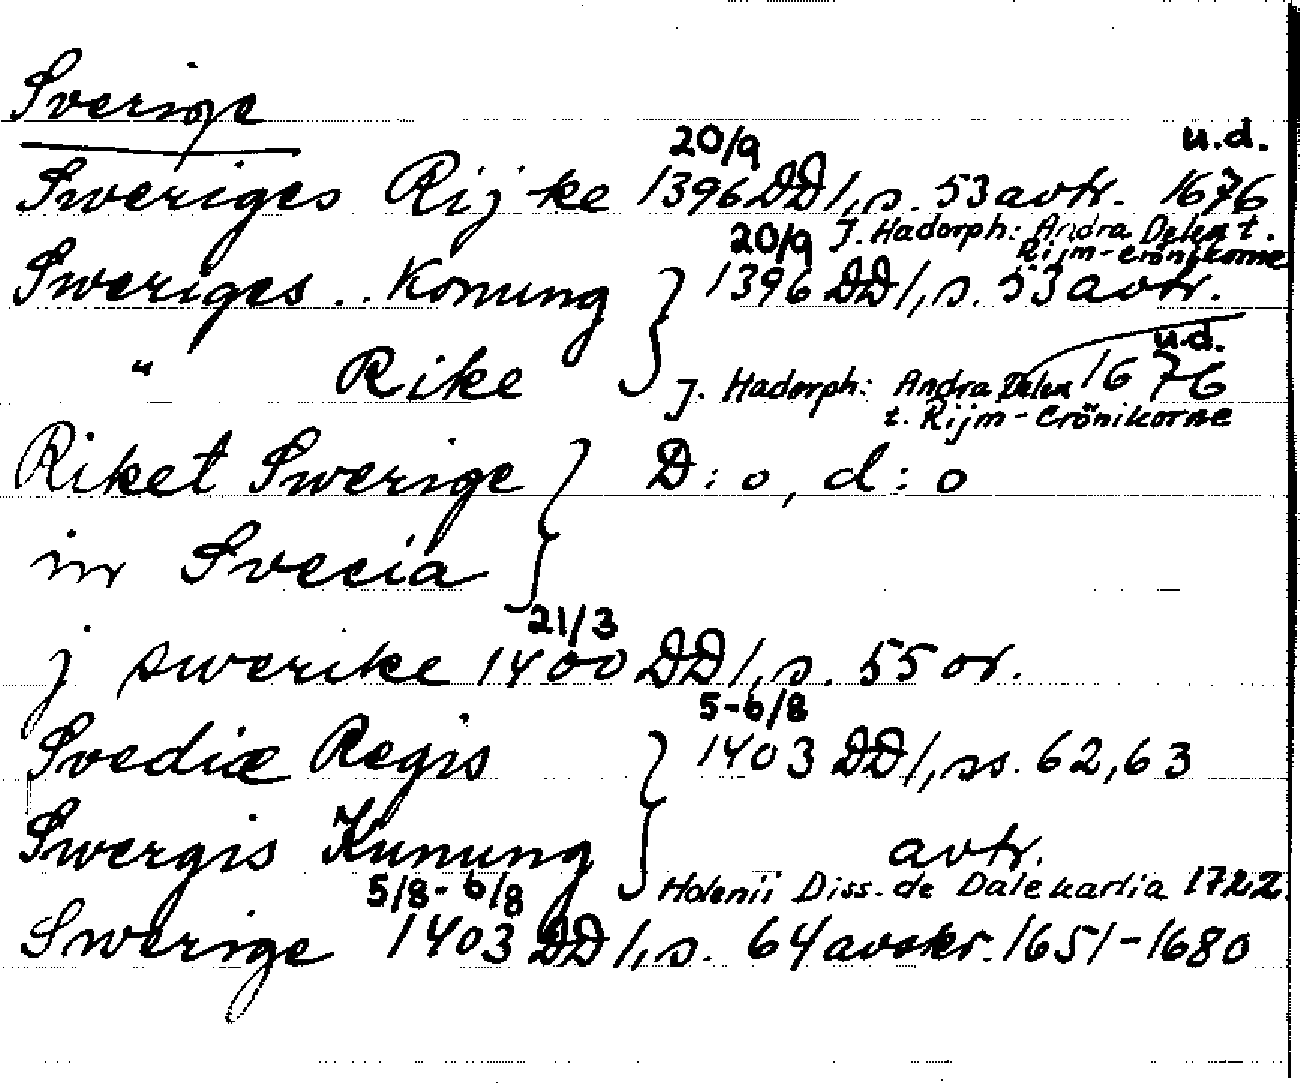 Sverige
20/9 u.d.
Sweriges Rijke 1396 DD 1, s. 53 avtr. 1676
J. Hadorph: Andra Delen t. Rijm-Crönikorne
20/9
Sweriges .. Konung } 1396 DD 1, s. 53 avtr.
u.d.
" Rike 1676
J. Hadorph: Andra Delen
t. Rijm-Crönikorne
Riket Swerige } D:o, d:o
in Svecia
21/3
j swerike 1400 DD 1, s. 55 or.
5-6/8
Svediæ Regis } 1403 DD 1, ss. 62, 63
Swergis Kunung avtr.
Holenii Diss. de Dalekarlia 1722.
5/8-6/8
Swerige 1403 DD 1, s. 64 avskr. 1651-1680